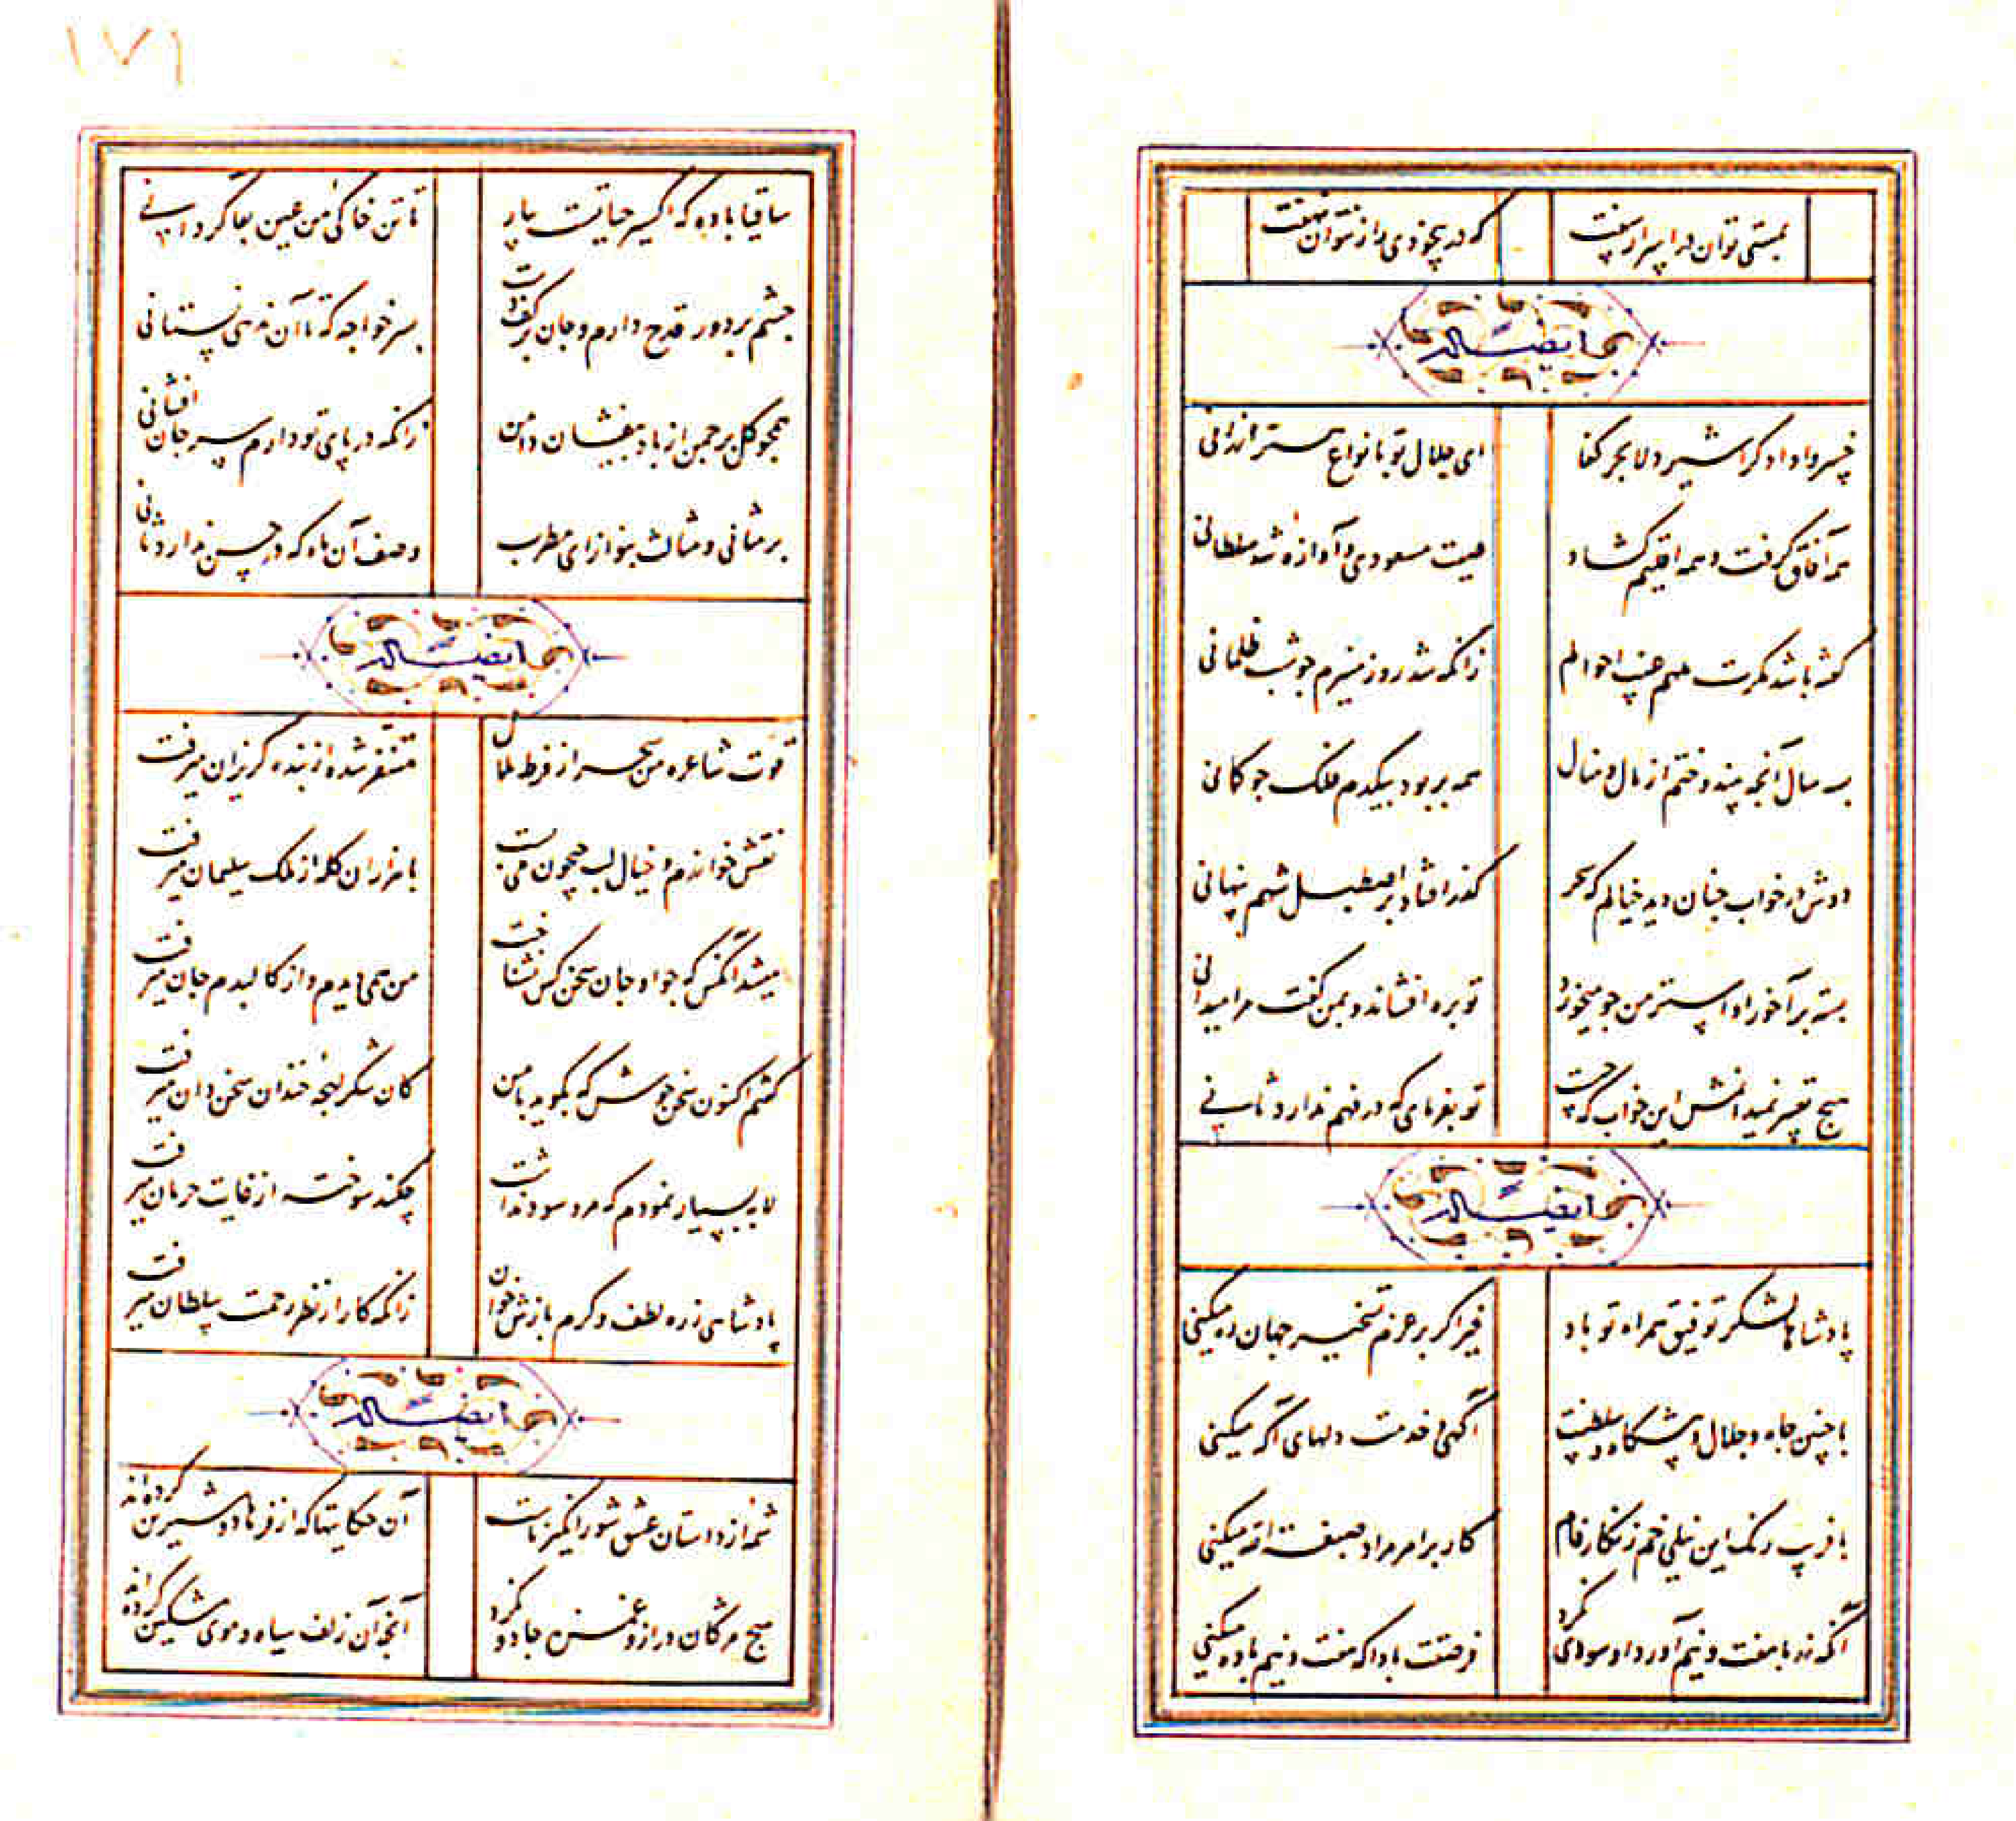 بمستی توان در اسرار سفت
که در بیخودی راز نتوان نهفت
ایضاله
خسروا دادگرا شیر دلا بحر کفا
ای جلال تو بانواع هنر ارزانی
همه آفاق گرفت و همه اقلیم گشاد
صیت مسعودی و آوازه شه سلطانی
گفته باشد مگرت ملهم غیب احوالم
زانکه شد روز منیرم چو شب ظلمانی
به سال آنچه بیندوختم از مال و منال
همه بربود بیکدم فلک چوکانی
دوش در خواب چنان دید خیالم که سحر
گذر افتاد بر اصطبل شهم پنهانی
بسته بر آخور او استر من جو میخورد
توبره افشاند و بمن گفت مرا میدانی
هیچ تعبیر نمیدانمش این خواب که چیست
تو بفرمای که در فهم نداری ثانی
ایضاله
پادشاها لشکر توفیق همراه تو باد
خیز اگر بر عزم تسخیر جهان ره میکنی
با چنین جاه و جلال و پیشگاه سلطنت
آگهی و خدمت دلهای آگه میکنی
با فریب رنگ این نیلی خم زنگار فام
کار بر امر مراد صبغة الله میکنی
آنکه ده با هفت و نیم آورد او سودی نکرد
فرصتت بادا که هفت و نیم با ده میکنی
۱۷۱
ساقیا باده که اکسیر حیاتست بیار
تا تن خاکی من عین بقا گردانی
چشم بر دور قدح دارم و جان بر کف دست
بسر خواجه که تا آن ندهی نستانی
همچو گل بر چمن از باد میفشان دامن
زانکه در پای تو دارم سر جان افشانی
بر مثانی و مثالث بنواز ای مطرب
وصف آن ماه که در حسن ندارد ثانی
ایضاله
قوت شاعره من سحر از فرط ملال
متنفر شده از بنده گریزان میرفت
نقش خوارزم و خیال لب جیحون می بست
با هزاران گله از ملک سلیمان میرفت
میشد آنکس که جز او جان سخن کس نشناخت
من همی دیدم و از کالبدم جان میرفت
گفتم اکنون سخن خوش که بگوید با من
کان شکر لهجه خندان سخن دان میرفت
لابه بسیار نمودم که مرو سود نداشت
چکند سوخته از غایت حرمان میرفت
پادشاهی ز ره لطف و کرم بازش خوان
زانکه کار از نظر رحمت سلطان میرفت
ایضاله
شمه از داستان عشق شورانگیز ماست
آن حکایتها که از فرهاد و شیرین کرده‌اند
هیچ مژگان دراز و غمزه جادو نکرد
آنچه آن زلف سیاه و موی مشکین کرده‌اند